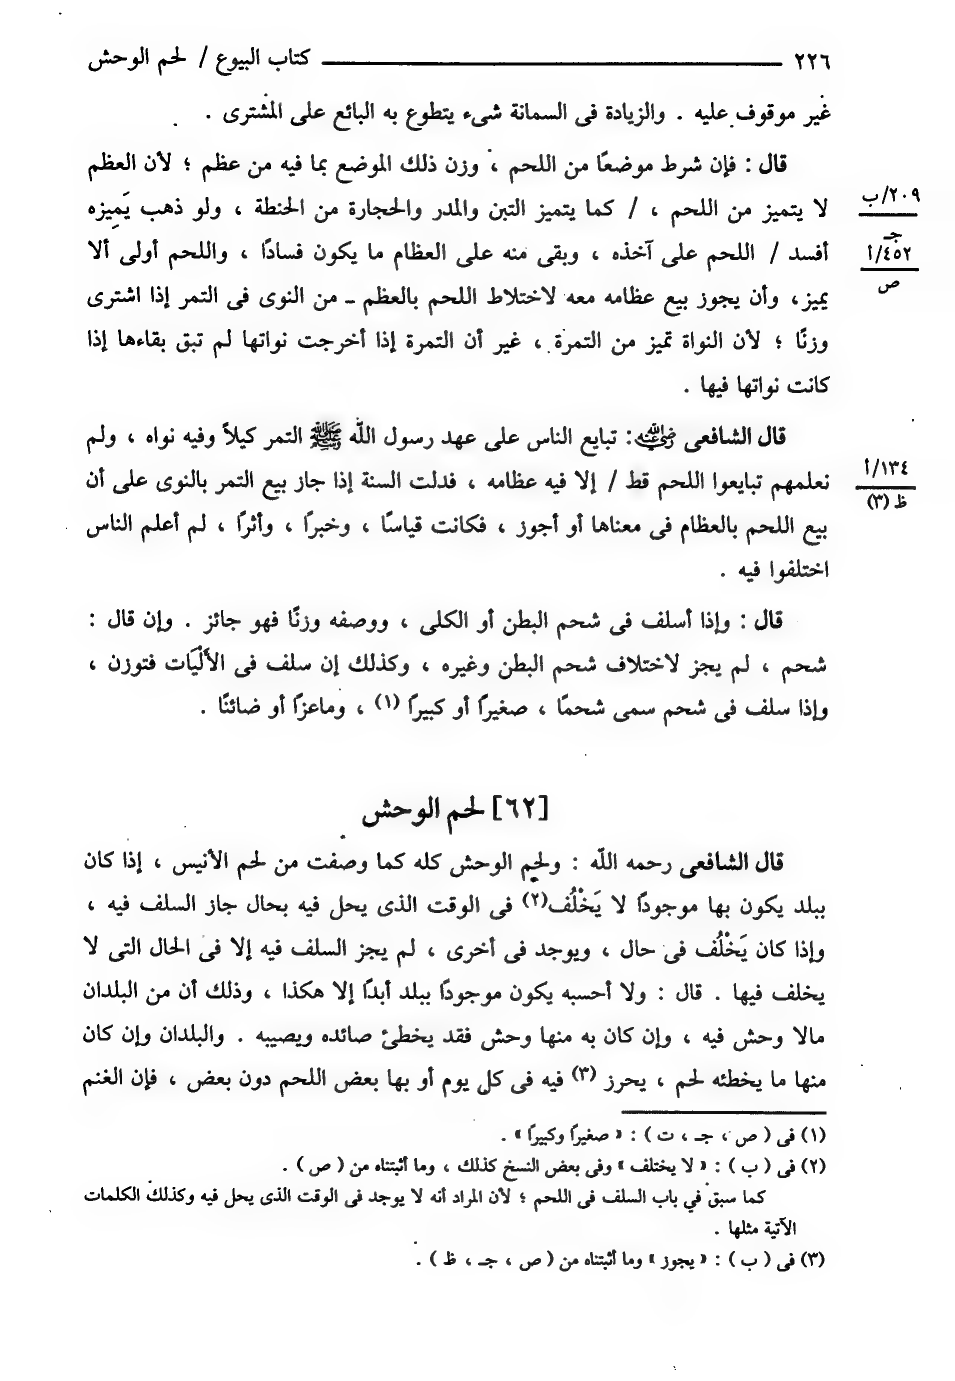 ٢٢٦ ــــــــــــــــ كتاب البيوع / لحم الوحش
غير موقوف عليه . والزيادة فى السمانة شىء يتطوع به البائع على المشترى .
قال : فإن شرط موضعًا من اللحم ، وزن ذلك الموضع بما فيه من عظم ؛ لأن العظم
لا يتميز من اللحم ، / كما يتميز التبن والمدر والحجارة من الحنطة ، ولو ذهب يَميِزه
٢٠٩/ب
جـ
أفسد / اللحم على آخذه ، وبقى منه على العظام ما يكون فسادًا ، واللحم أولى ألا
٤٥٢/أ
ص
يميز، وأن يجوز بيع عظامه معه لاختلاط اللحم بالعظم ــ من النوى فى التمر إذا اشترى
وزنًا ؛ لأن النواة تميز من التمرة ، غير أن التمرة إذا أخرجت نواتها لم تبق بقاءها إذا
كانت نواتها فيها .
قال الشافعى رَضِيَ اللهُ عَنْهُ : تبايع الناس على عهد رسول الله ﷺ التمر كيلاً وفيه نواه ، ولم
نعلمهم تبايعوا اللحم قط / إلا فيه عظامه ، فدلت السنة إذا جاز بيع التمر بالنوى على أن
١٣٤/أ
ظ (٣)
بيع اللحم بالعظام فى معناها أو أجوز ، فكانت قياسًا ، وخبرًا ، وأثرًا ، لم أعلم الناس
اختلفوا فيه .
قال : وإذا أسلف فى شحم البطن أو الكلى ، ووصفه وزنًا فهو جائز . وإن قال :
شحم ، لم يجز لاختلاف شحم البطن وغيره ، وكذلك إن سلف فى الأَلْيَات فتوزن ،
وإذا سلف فى شحم سمى شحمًا ، صغيرًا أو كبيرًا (١) ، وماعزًا أو ضائنًا .
[٦٢] لحم الوحش
قال الشافعى رحمه الله : ولحم الوحش كله كما وصفت من لحم الأنيس ، إذا كان
ببلد يكون بها موجودًا لا يَخْلُف(٢) فى الوقت الذى يحل فيه بحال جاز السلف فيه ،
وإذا كان يَخْلُف فى حال ، ويوجد فى أخرى ، لم يجز السلف فيه إلا فى الحال التى لا
يخلف فيها . قال : ولا أحسبه يكون موجودًا ببلد أبدًا إلا هكذا ، وذلك أن من البلدان
مالا وحش فيه ، وإن كان به منها وحش فقد يخطئ صائده ويصيبه . والبلدان وإن كان
منها ما يخطئه لحم ، يحرز (٣) فيه فى كل يوم أو بها بعض اللحم دون بعض ، فإن الغنم
(١) فى ( ص ، جـ ، ت ) : « صغيرًا وكبيرًا » .
(٢) فى ( ب ) : « لا يختلف » وفى بعض النسخ كذلك ، وما أثبتناه من ( ص ) .
كما سبق في باب السلف فى اللحم ؛ لأن المراد أنه لا يوجد فى الوقت الذى يحل فيه وكذلك الكلمات
الآتية مثلها .
(٣) فى ( ب ) : « يجوز » وما أثبتناه من ( ص ، جـ ، ظ ) .